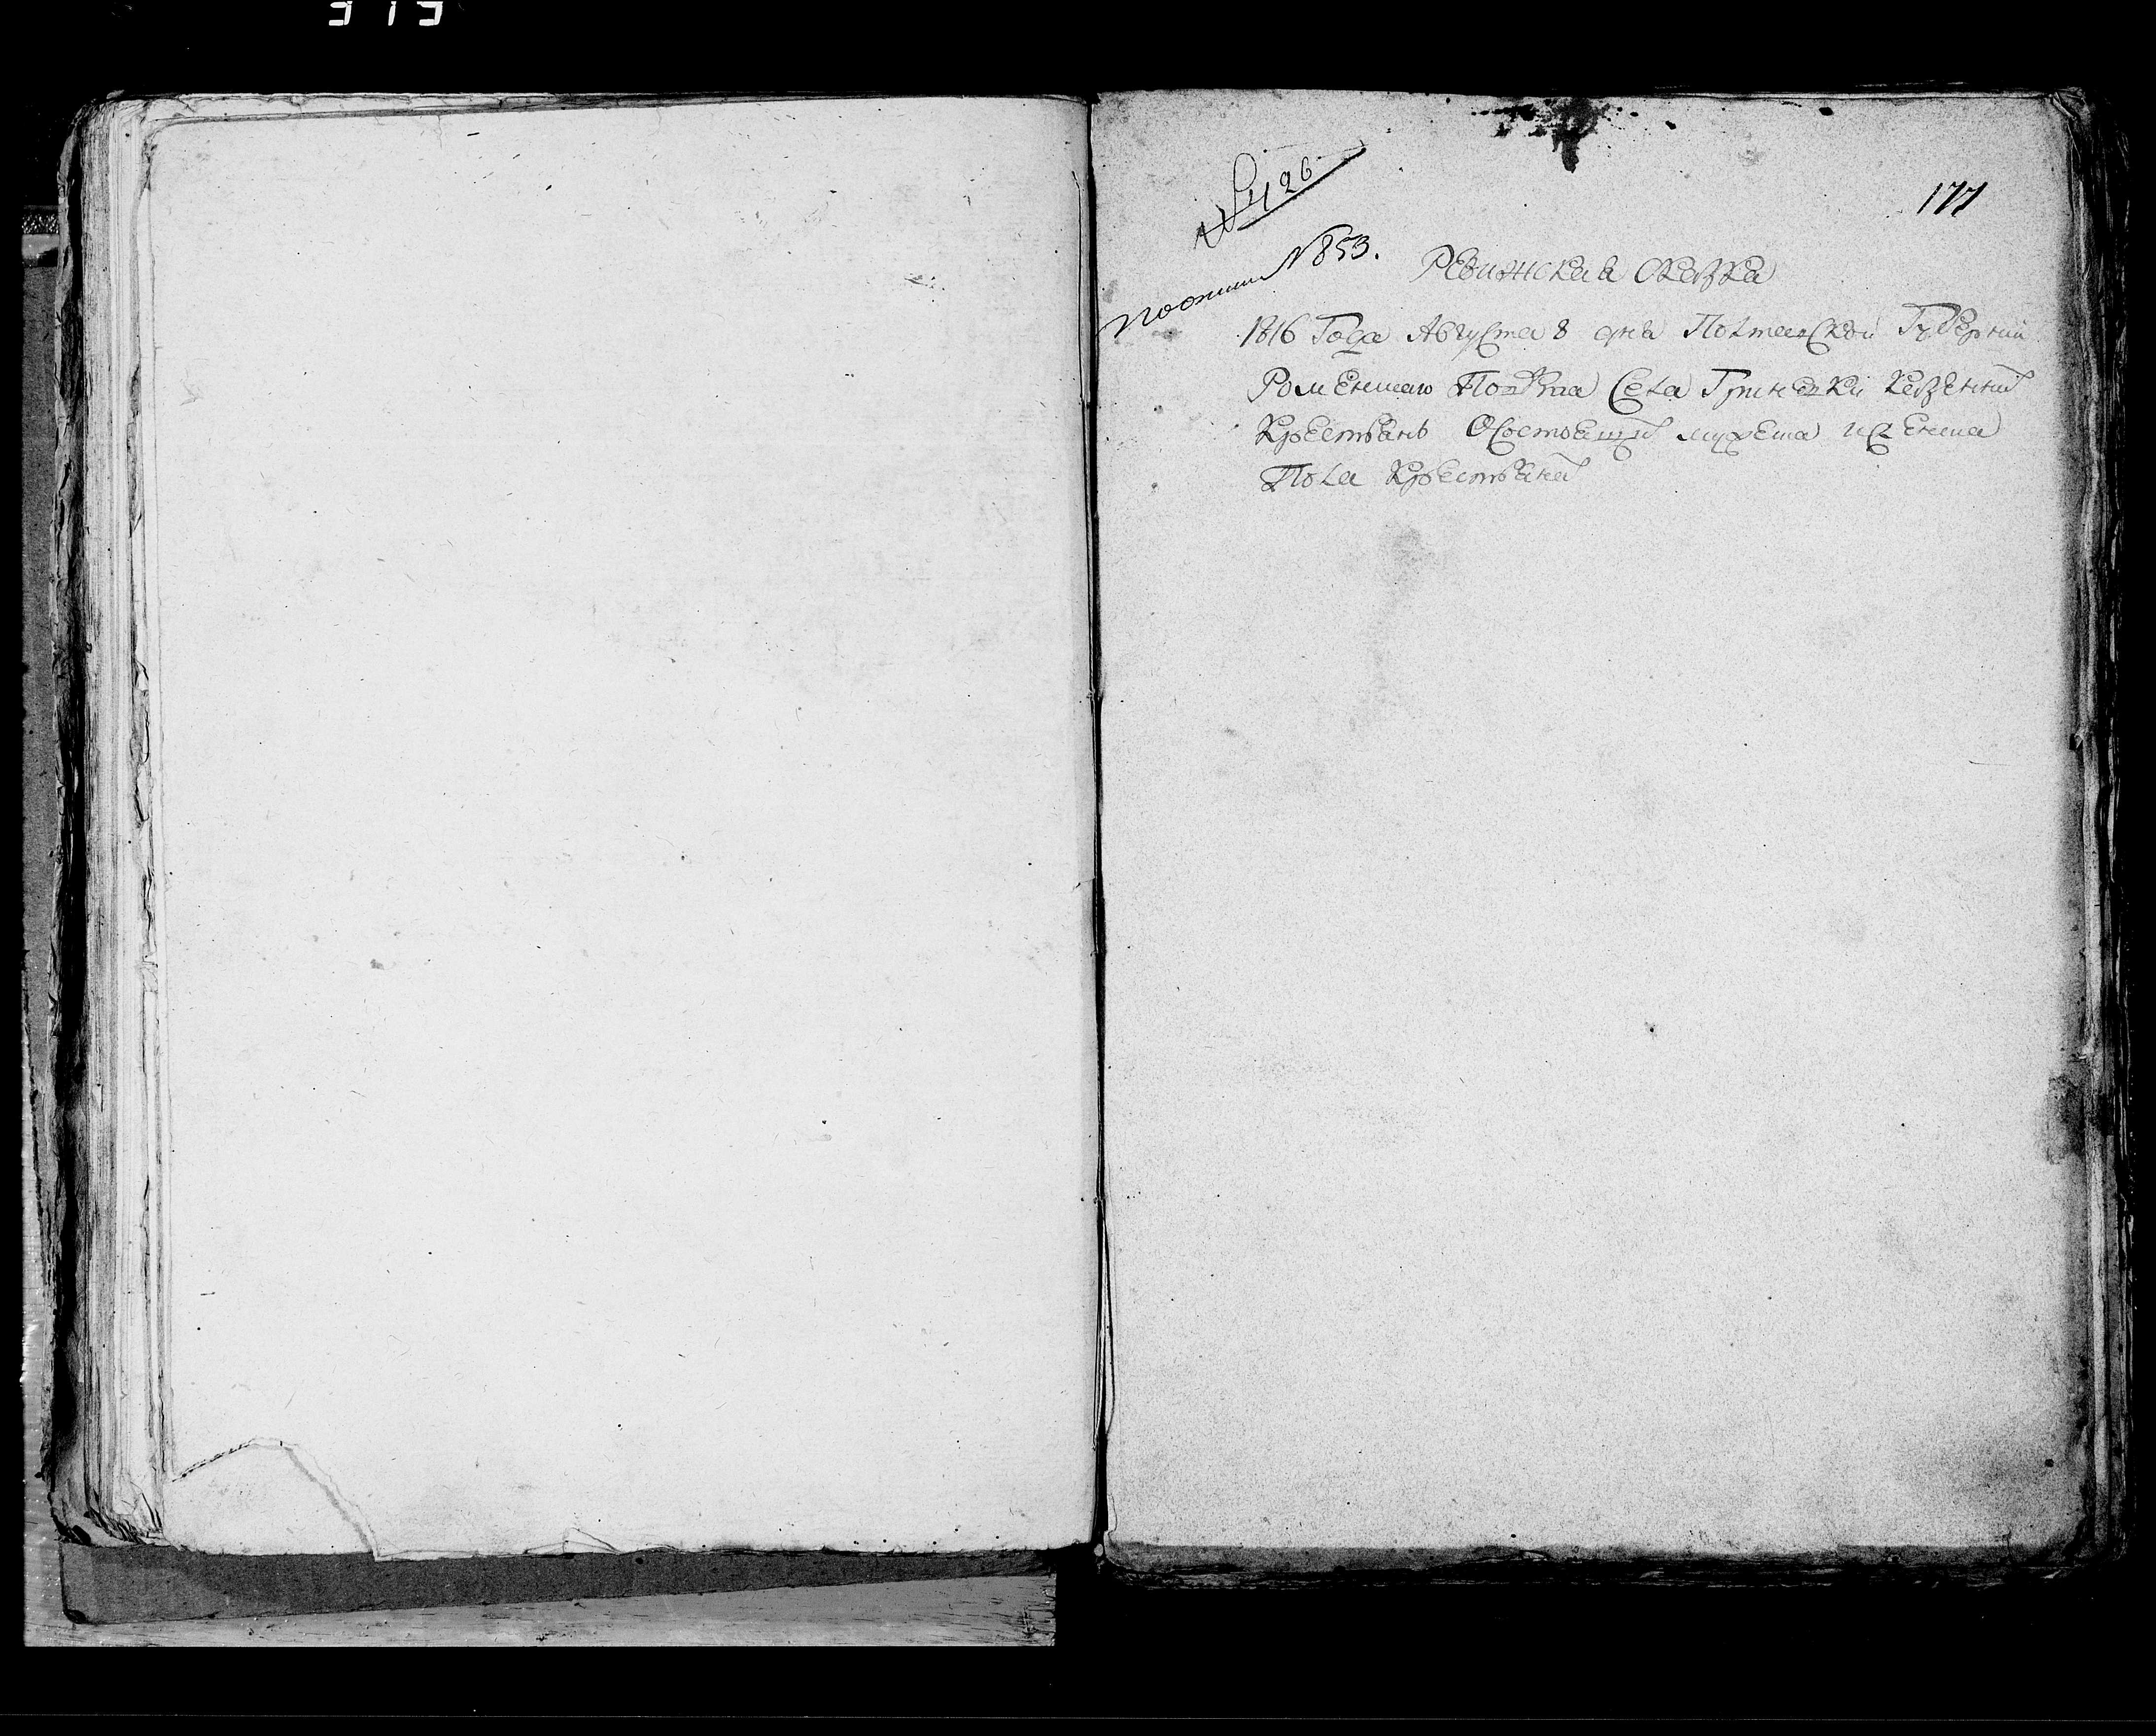 313
177
№ 426
По описи № 853.
Ревижская сказка
1816 Года Августа 8 дня Полтавской Губернии
Роменского Повета Села Гриневки казенний
Крестьянъ О состоящий мужеска и женска
Пола крестьяна